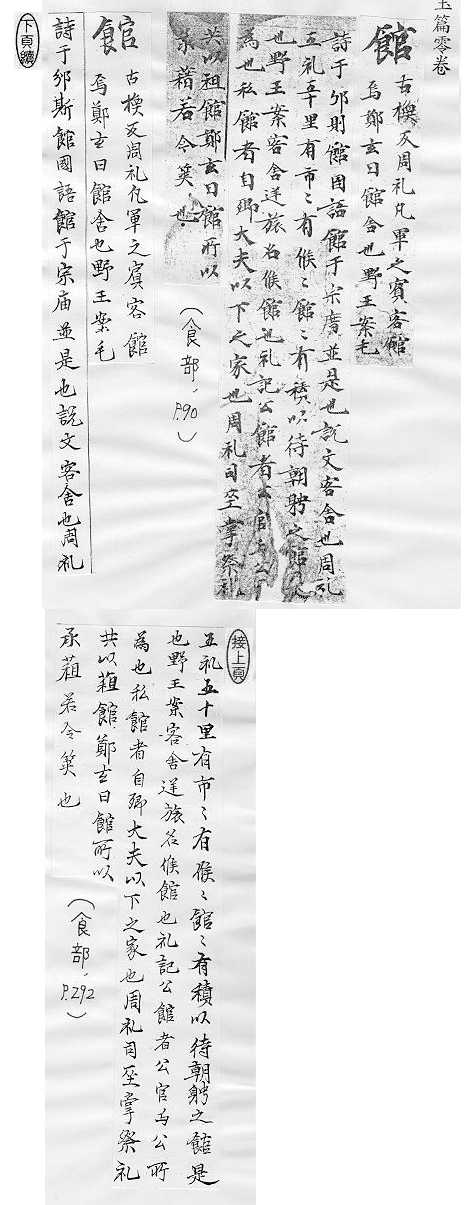 玉篇零卷
館
古換反周礼凡軍之賓客館
焉鄭玄曰館舍也野王案毛
詩于邠則館国語館于宗庿並是也説文客舍也周礼
五礼五十里有市〻有候〻館〻有積以待朝聘之館是
也野王案客舍逆旅名候館也礼記公館者公官与公所
為也私館者自卿大夫以下之家也周礼司巫掌祭礼
共以租館鄭玄曰館所以
承藉若今筐也
(食部,P.90)
館
古換反周礼凡軍之賓客館
焉鄭玄曰館舍也野王案毛
詩于邠斯館國語館于宗庙並是也説文客舍也周礼
下頁續
接上頁
五礼五十里有市〻有候〻館〻有積以待朝聘之館是
也野王案客舍逆旅名候館也礼記公館者公官与公所
為也私館者自卿大夫以下之家也周礼司巫掌祭礼
共以蒩館鄭玄曰館所以
承蒩若今筐也
(食部,P.292)